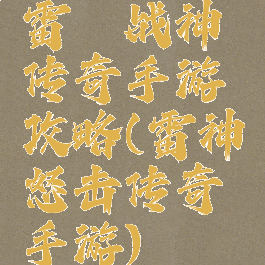 雷 战神
传奇手游
攻略(雷神
怒击传奇
手游)